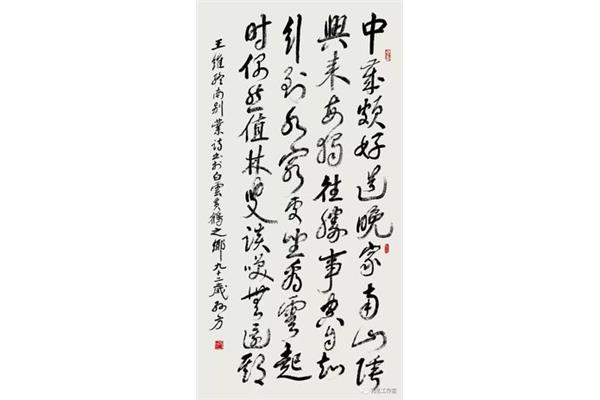 中歲頗好道晚家南山陲
興来每獨往勝事空自知
行到水窮處坐看雲起
时偶然值林叟談咲無還期
王維終南别業詩書於白雲黄鶴之鄉九十二歲孙方